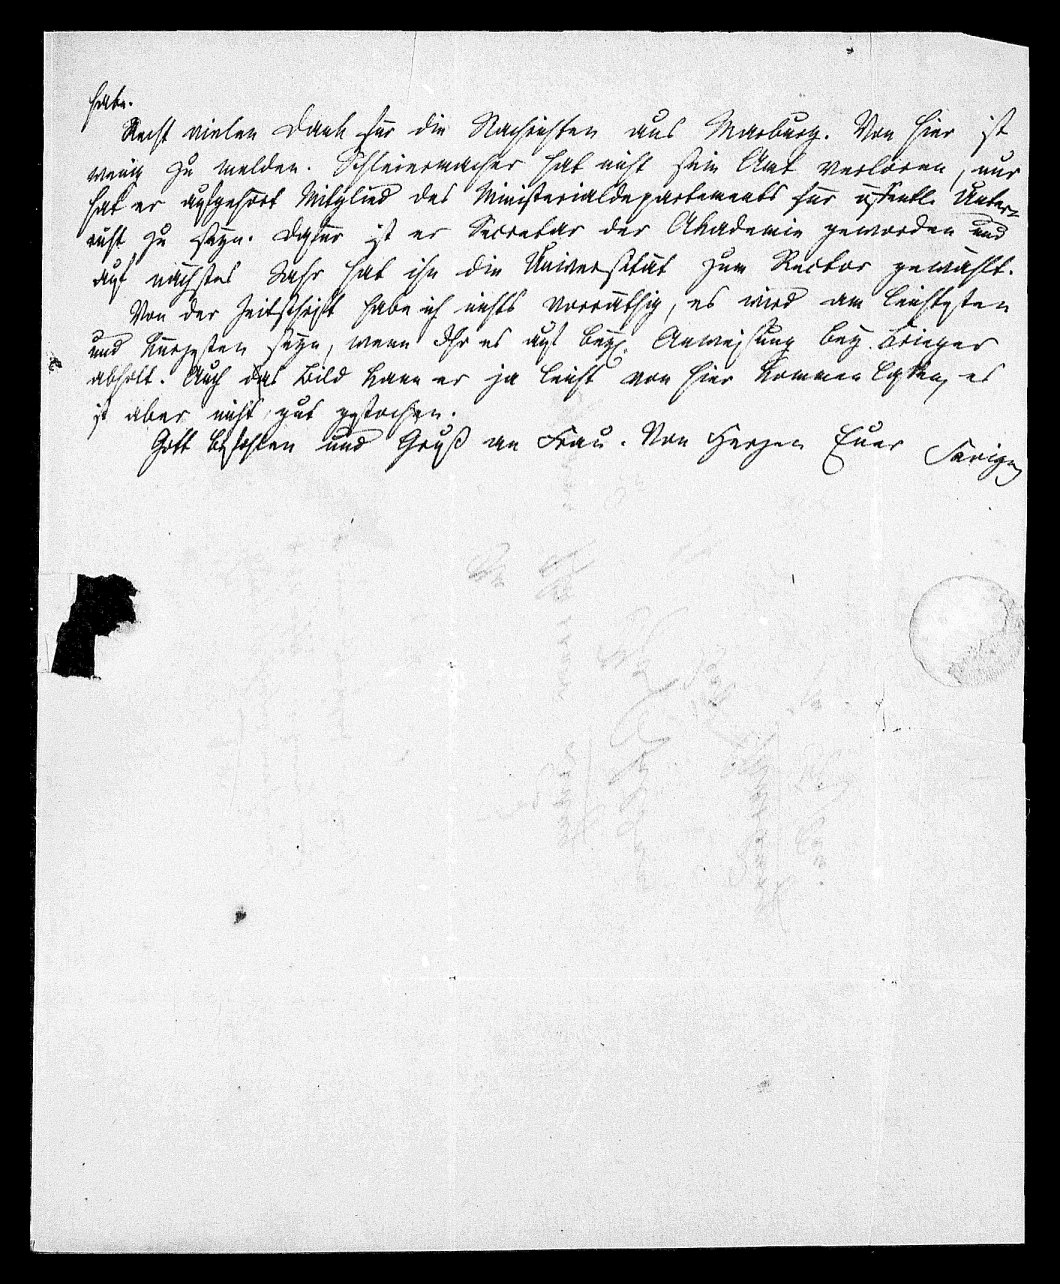 habe.
Recht vielen Dank für die Nachrichten aus Marburg. Von hier ist
wenig zu melden. Schleiermacher hat nicht sein Amt verloren, nur
hat er aufgehört Mitglied des Ministerialdepartements für öffentl. Unter-
richt zu seyn. Dafür ist er Secretar der Akademie geworden und
auf nächstes Jahr hat ihn die Universität zum Rector gewählt.
Von der Zeitschrift habe ich nichts vorräthig, es wird am leichtesten
und kürzesten seyn, wenn Ihr es auf beyl. Anweisung bey Krieger
abholt. Auch das Bild kann er ja leicht von hier kommen lassen, es
ist aber nicht gut gestochen.
Gott befohlen und Gruß an Frau. Von Herzen Euer Savigny